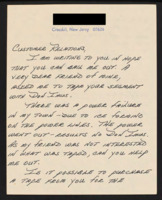 Cresskill, New Jersey 07626
Customer Relations,
I am writing to you in hope
that you can bail me out. A
very dear friend of mine,
asked me to tape your segment
with Don Imus.
There was a power failure
in my town - due to ice forming
on the power lines. The power
went out - results no Don Imus.
As my friend was not interested
in what was taped, can you help
me out.
Is it possible to purchase
a tape from you for the